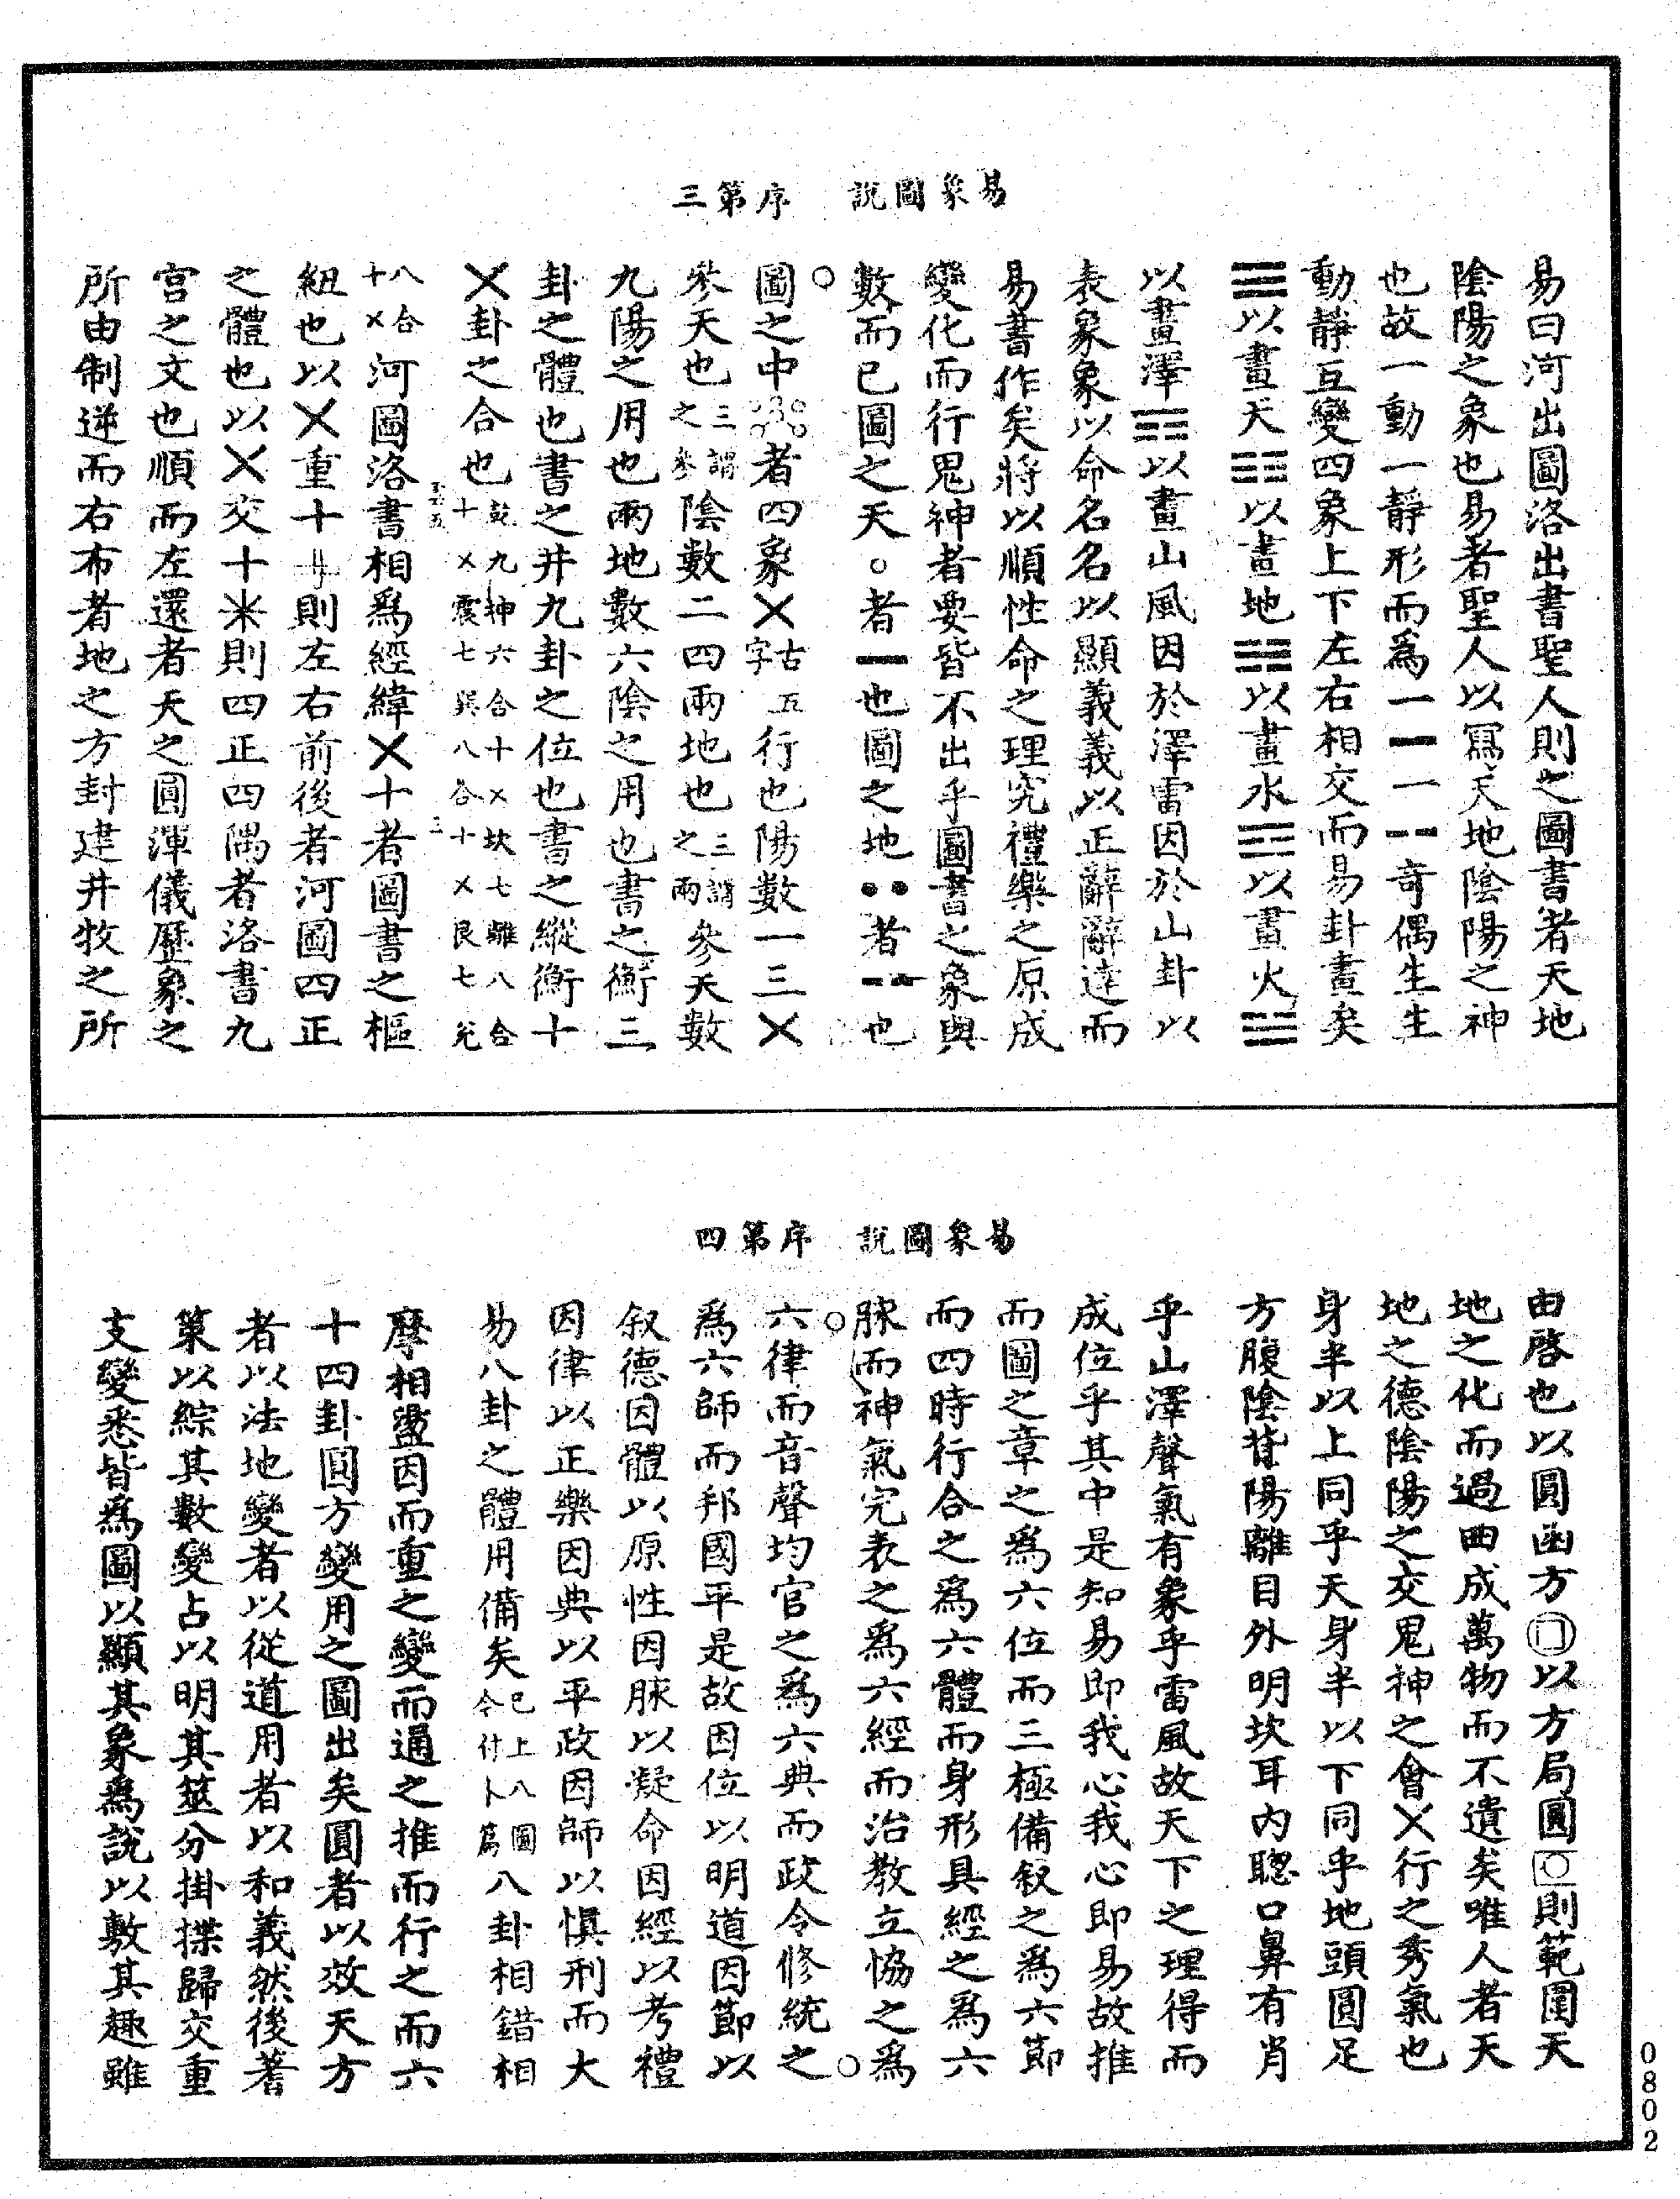 易象圖說　序第三
易曰河出圖洛出書聖人則之圖書者天地
陰陽之象也易者聖人以寫天地陰陽之神
也故一動一靜形而爲一⚊一⚋奇偶生生
動靜互變四象上下左右相交而易卦畫矣
☰以畫天☷以畫地☵以畫水☲以畫火☱
以畫澤☶以畫山風因於澤雷因於山卦以
表象象以命名名以顯義義以正辭辭達而
易書作矣將以順性命之理究禮樂之原成
變化而行鬼神者要皆不出乎圖書之象與
數而已圖之天○者⚊也圖之地●●者⚋也
○
圖之中者四象㐅古五字行也陽數一三㐅
參天也三謂之參陰數二四兩地也三謂之兩參天數
九陽之用也兩地數六陰之用也書之衡三
卦之體也書之井九卦之位也書之縱衡十
㐅卦之合也乾九坤六合十㐅坎七離八合十㐅震七巽八合十㐅艮七兌
八合十㐅河圖洛書相爲經緯㐅十者圖書之樞
紐也以㐅重十則左右前後者河圖四正
之體也以㐅交十米則四正四隅者洛書九
宮之文也順而左還者天之圓渾儀歷象之
所由制逆而右布者地之方封建井牧之所
易象圖說　序第四
由啓也以圓函方以方局圓則範圍天
地之化而過曲成萬物而不遺矣唯人者天
地之德陰陽之交鬼神之會㐅行之秀氣也
身半以上同乎天身半以下同乎地頭圓足
方腹陰背陽離目外明坎耳內聰口鼻有肖
乎山澤聲氣有象乎雷風故天下之理得而
成位乎其中是知易即我心我心即易故推
而圖之章之爲六位而三極備叙之爲六節
而四時行合之爲六體而身形具經之爲六
脉而神氣完表之爲六經而治教立協之爲
○六律而音聲均官之爲六典而政令修統之○
爲六師而邦國平是故因位以明道因節以
叙德因體以原性因脉以凝命因經以考禮
因律以正樂因典以平政因師以愼刑而大
易八卦之體用備矣已上八圖令付卜篇八卦相錯相
摩相盪因而重之變而通之推而行之而六
十四卦圓方變用之圖出矣圓者以效天方
者以法地變者以從道用者以和義然後蓍
策以綜其數變占以明其筮分掛揲歸交重
支變悉皆爲圖以顯其象爲說以敷其趣雖
0802